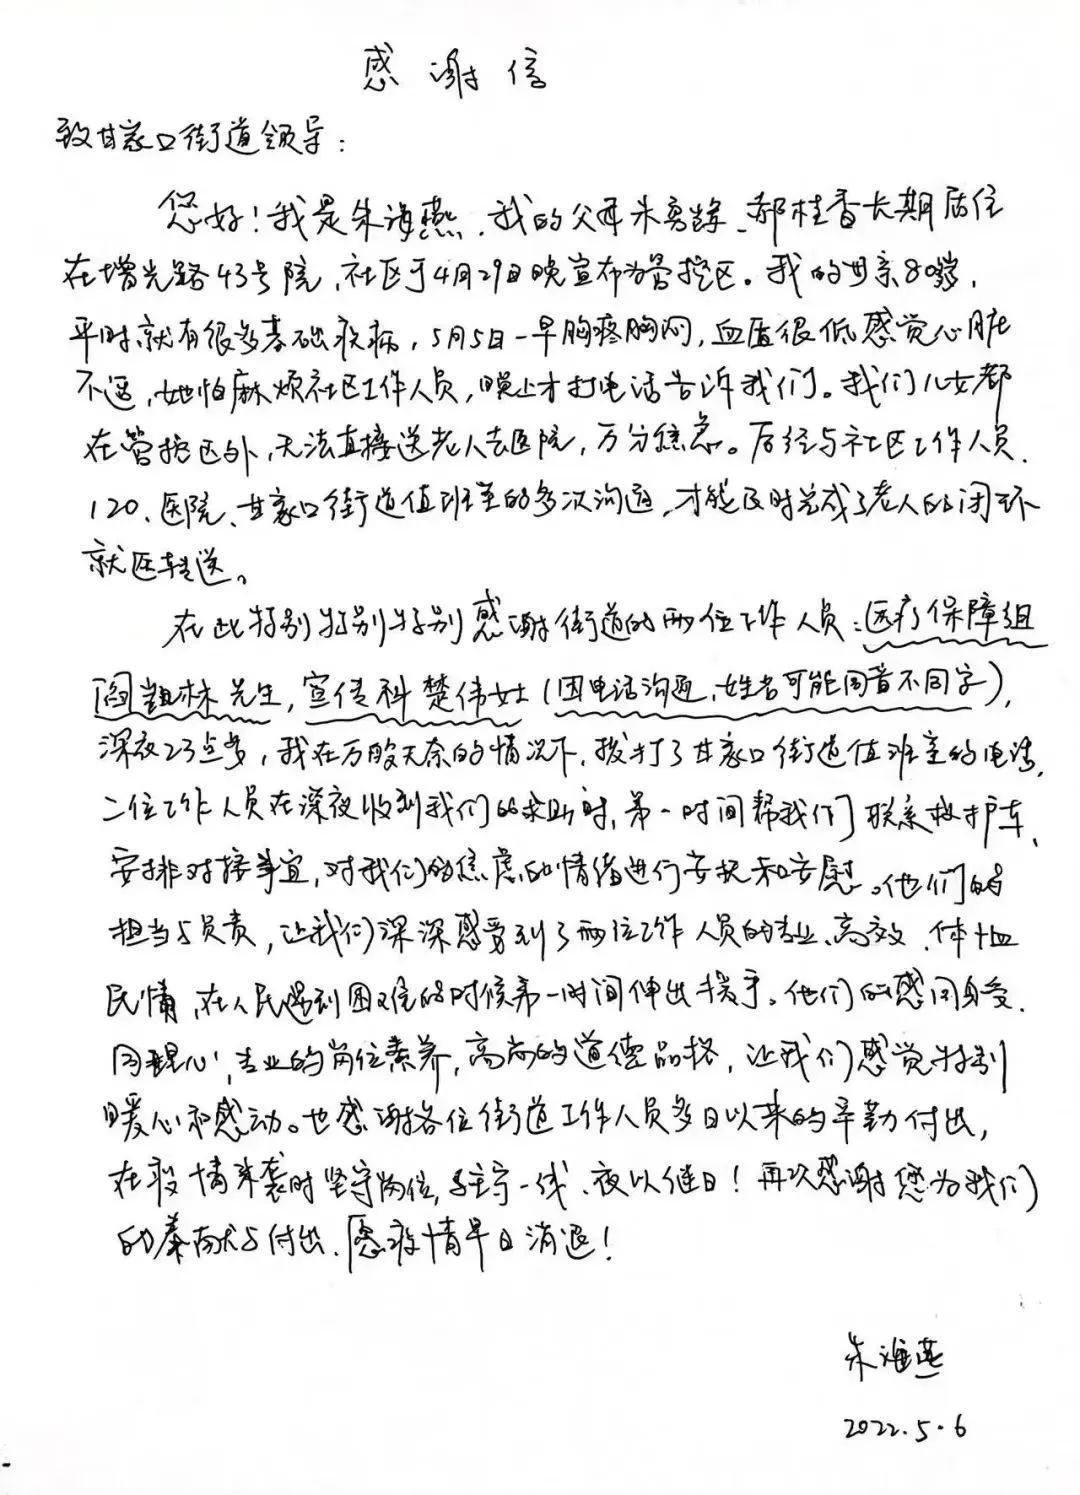 感谢信
致甘家口街道领导：
您好！我是朱海燕，我的父母朱、郝桂香长期居住
在增光路43号院，社区于4月29日晚宣布为管控区。我的母亲80岁，
平时就有很多基础疾病，5月5日一早胸疼胸闷，血压很低感觉心脏
不适，她怕麻烦社区工作人员，晚上才打电话告诉我们。我们儿女都
在管控区外，无法直接送老人去医院，万分焦急。后经与社区工作人员、
120、医院、甘家口街道值班室的多次沟通，才能及时完成了老人的闭环
就医转送。
在此特别特别特别感谢街道的两位工作人员：医疗保障组
阎凯林先生，宣传科楚伟女士（因电话沟通，姓名可能同音不同字），
深夜23点多，我在万般无奈的情况下，拨打了甘家口街道值班室的电话，
二位工作人员在深夜收到我们的求助时，第一时间帮我们联系救护车、
安排对接事宜，对我们的焦虑的情绪进行安抚和安慰。他们的
担当与负责，让我们深深感受到了两位工作人员的专业、高效、体恤
民情，在人民遇到困难的时候第一时间伸出援手。他们的感同身受、
同理心，专业的岗位素养，高尚的道德品格，让我们感觉特别
暖心和感动。也感谢各位街道工作人员多日以来的辛勤付出，
在疫情来袭时坚守岗位，驻守一线、夜以继日！再次感谢您为我们
的奉献与付出，愿疫情早日消退！
朱海燕
2022.5.6